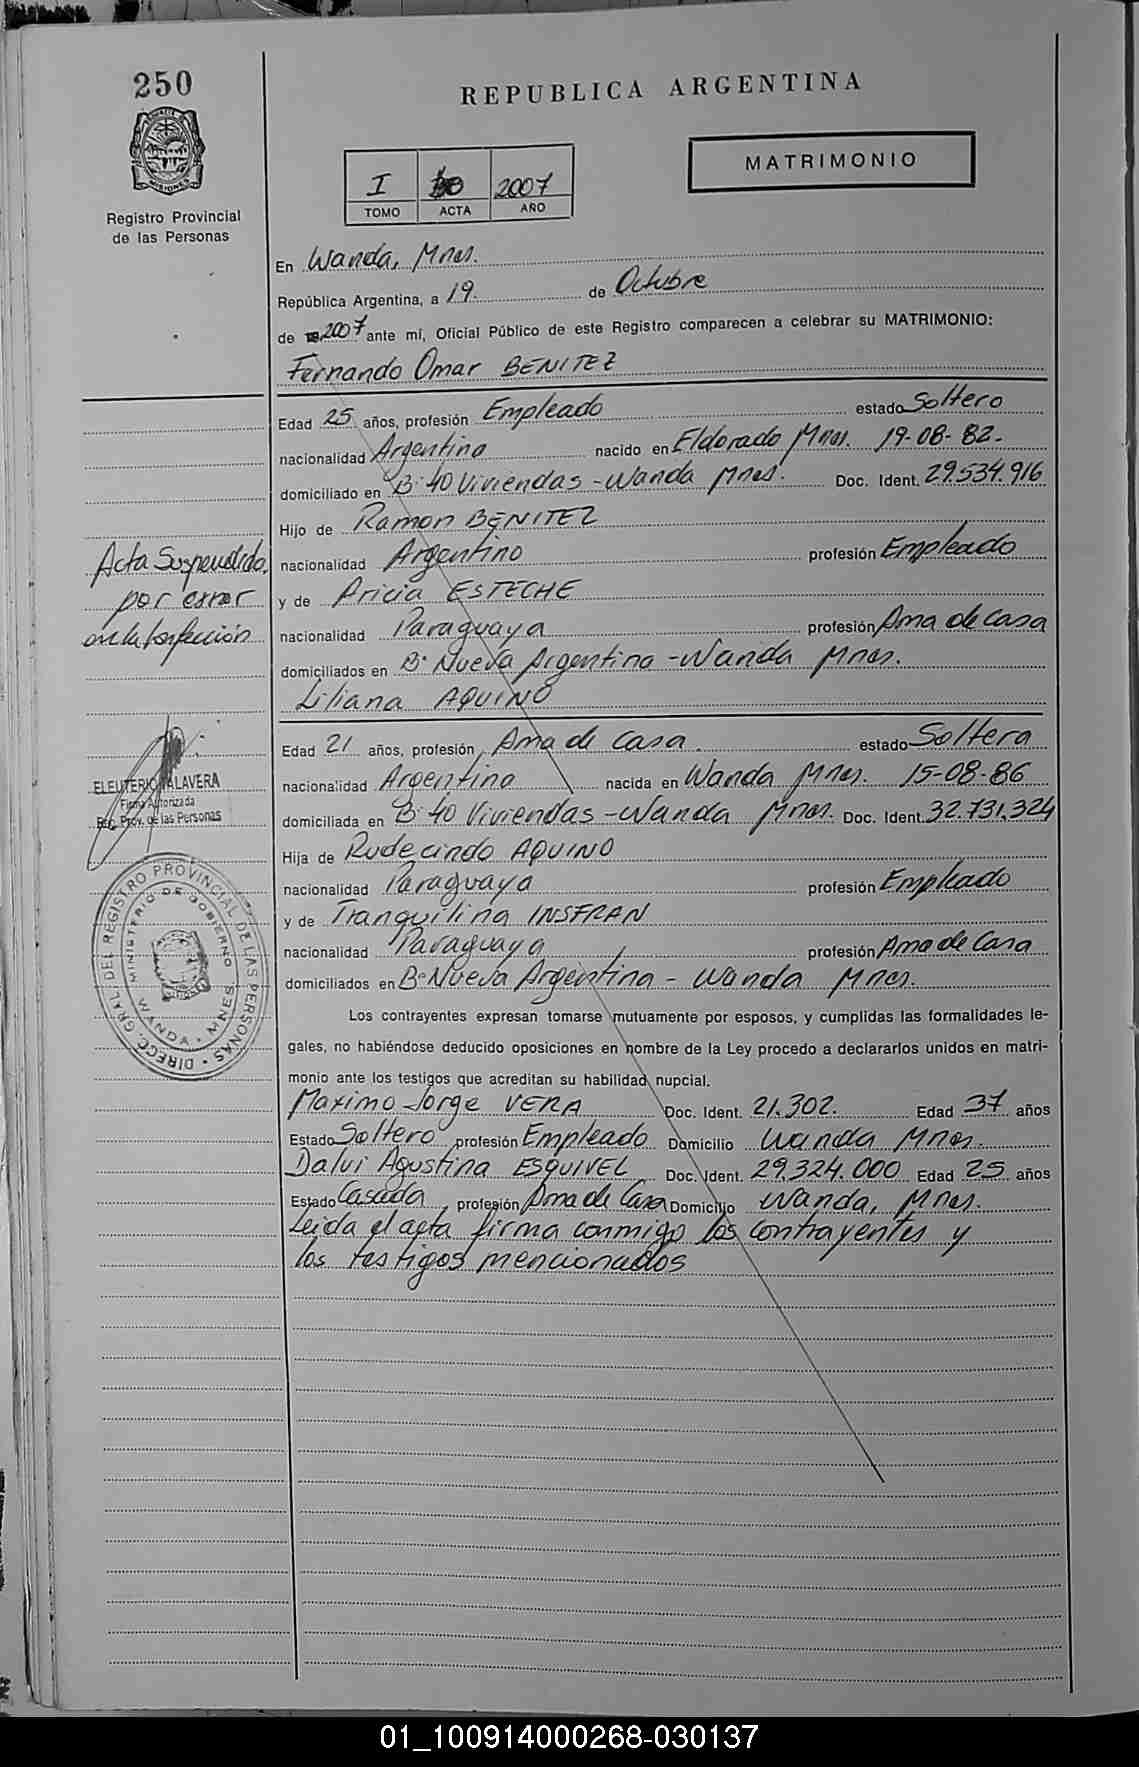 250
REPUBLICA ARGENTINA
MATRIMONIO
I 2007
TOMO ACTA AÑO
MISIONES
Registro Provincial
de las Personas
En Wanda, Mnes.
República Argentina, a 19. de Octubre
de 2007 ante mí, Oficial Público de este Registro comparecen a celebrar su MATRIMONIO:
Fernando Omar BENITEZ
Edad 25 años, profesión Empleado estado Soltero
nacionalidad Argentina nacido en Eldorado Mnes. 19-08-82.
domiciliado en B° 40 Viviendas - Wanda Mnes. Doc. Ident. 29.534.916
Hijo de Ramon BENITEZ
nacionalidad Argentino profesión Empleado
y de Aricia ESTECHE
nacionalidad Paraguaya profesión Ama de Casa
domiciliados en B° Nueva Argentina - Wanda Mnes.
Liliana AQUINO
Edad 21 años, profesión Ama de Casa. estado Soltera
nacionalidad Argentina nacida en Wanda Mnes. 15-08-86
domiciliada en B° 40 Viviendas - Wanda Mnes. Doc. Ident. 32.731.324
Hija de Rudecindo AQUINO
nacionalidad Paraguaya profesión Empleado
y de Tranquilina INSFRAN
nacionalidad Paraguaya profesión Ama de Casa
domiciliados en B° Nueva Argentina - Wanda Mnes.
Los contrayentes expresan tomarse mutuamente por esposos, y cumplidas las formalidades le-
gales, no habiéndose deducido oposiciones en nombre de la Ley procedo a declararlos unidos en matri-
monio ante los testigos que acreditan su habilidad nupcial.
Maximo Jorge VERA Doc. Ident. 21.302. Edad 37 años
Estado Soltero profesión Empleado Domicilio Wanda Mnes.
Dalvi Agustina ESQUIVEL Doc. Ident. 29.324.000 Edad 25 años
Estado Casada, profesión Ama de Casa Domicilio Wanda, Mnes.
Leida el acta firma conmigo los contrayentes y
los testigos mencionados
Acta Suspendida.
por error
en la Confección
ELEUTERIO TALAVERA
Firma Autorizada
Reg. Prov. de las Personas
DIRECC. GRAL. DEL REGISTRO PROVINCIAL DE LAS PERSONAS
MINISTERIO DE GOBIERNO
WANDA - MNES.
01_100914000268-030137